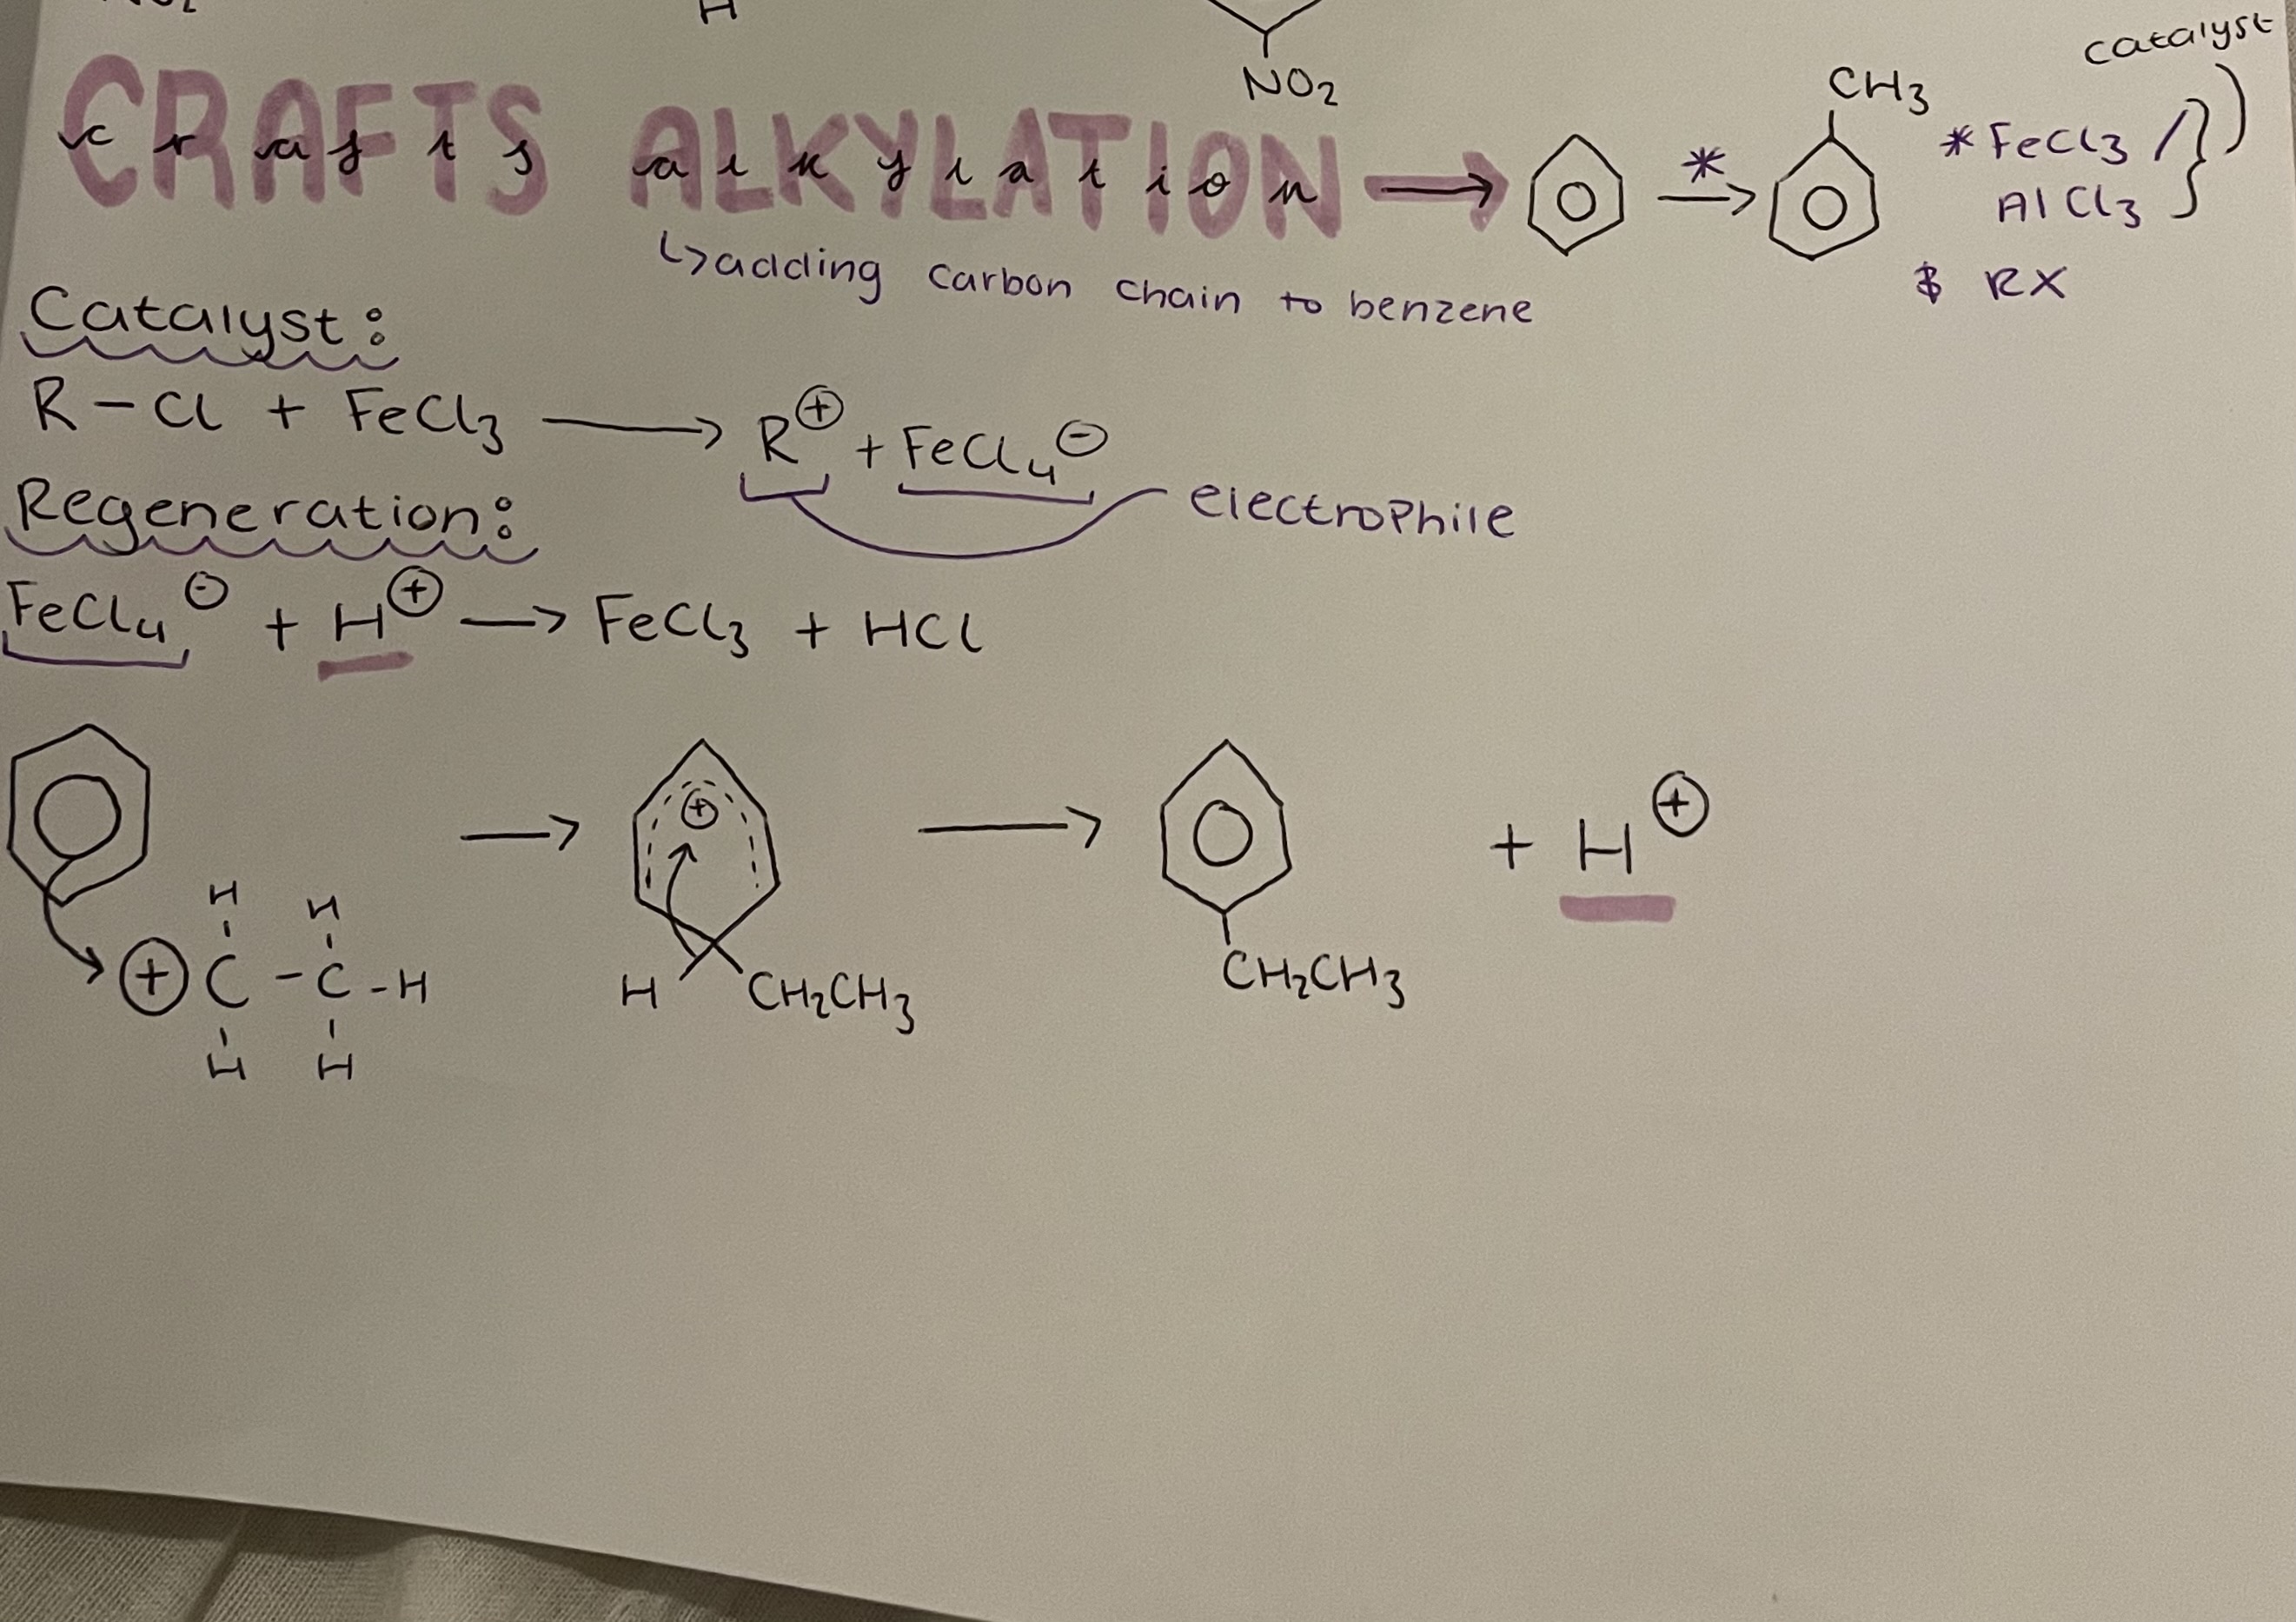 NO2
H
NO2
CRAFTS ALKYLATION →
crafts alkylation
→ *
CH3
* FeCl3 /
AlCl3
catalyst
& RX
↳ adding carbon chain to benzene
Catalyst:
R - Cl + FeCl3 → R⊕ + FeCl4⊖
electrophile
Regeneration:
FeCl4⊖ + H⊕ → FeCl3 + HCl
→ ⊕ → + H⊕
H H
⊕ C - C - H
H H
H CH2CH3
CH2CH3